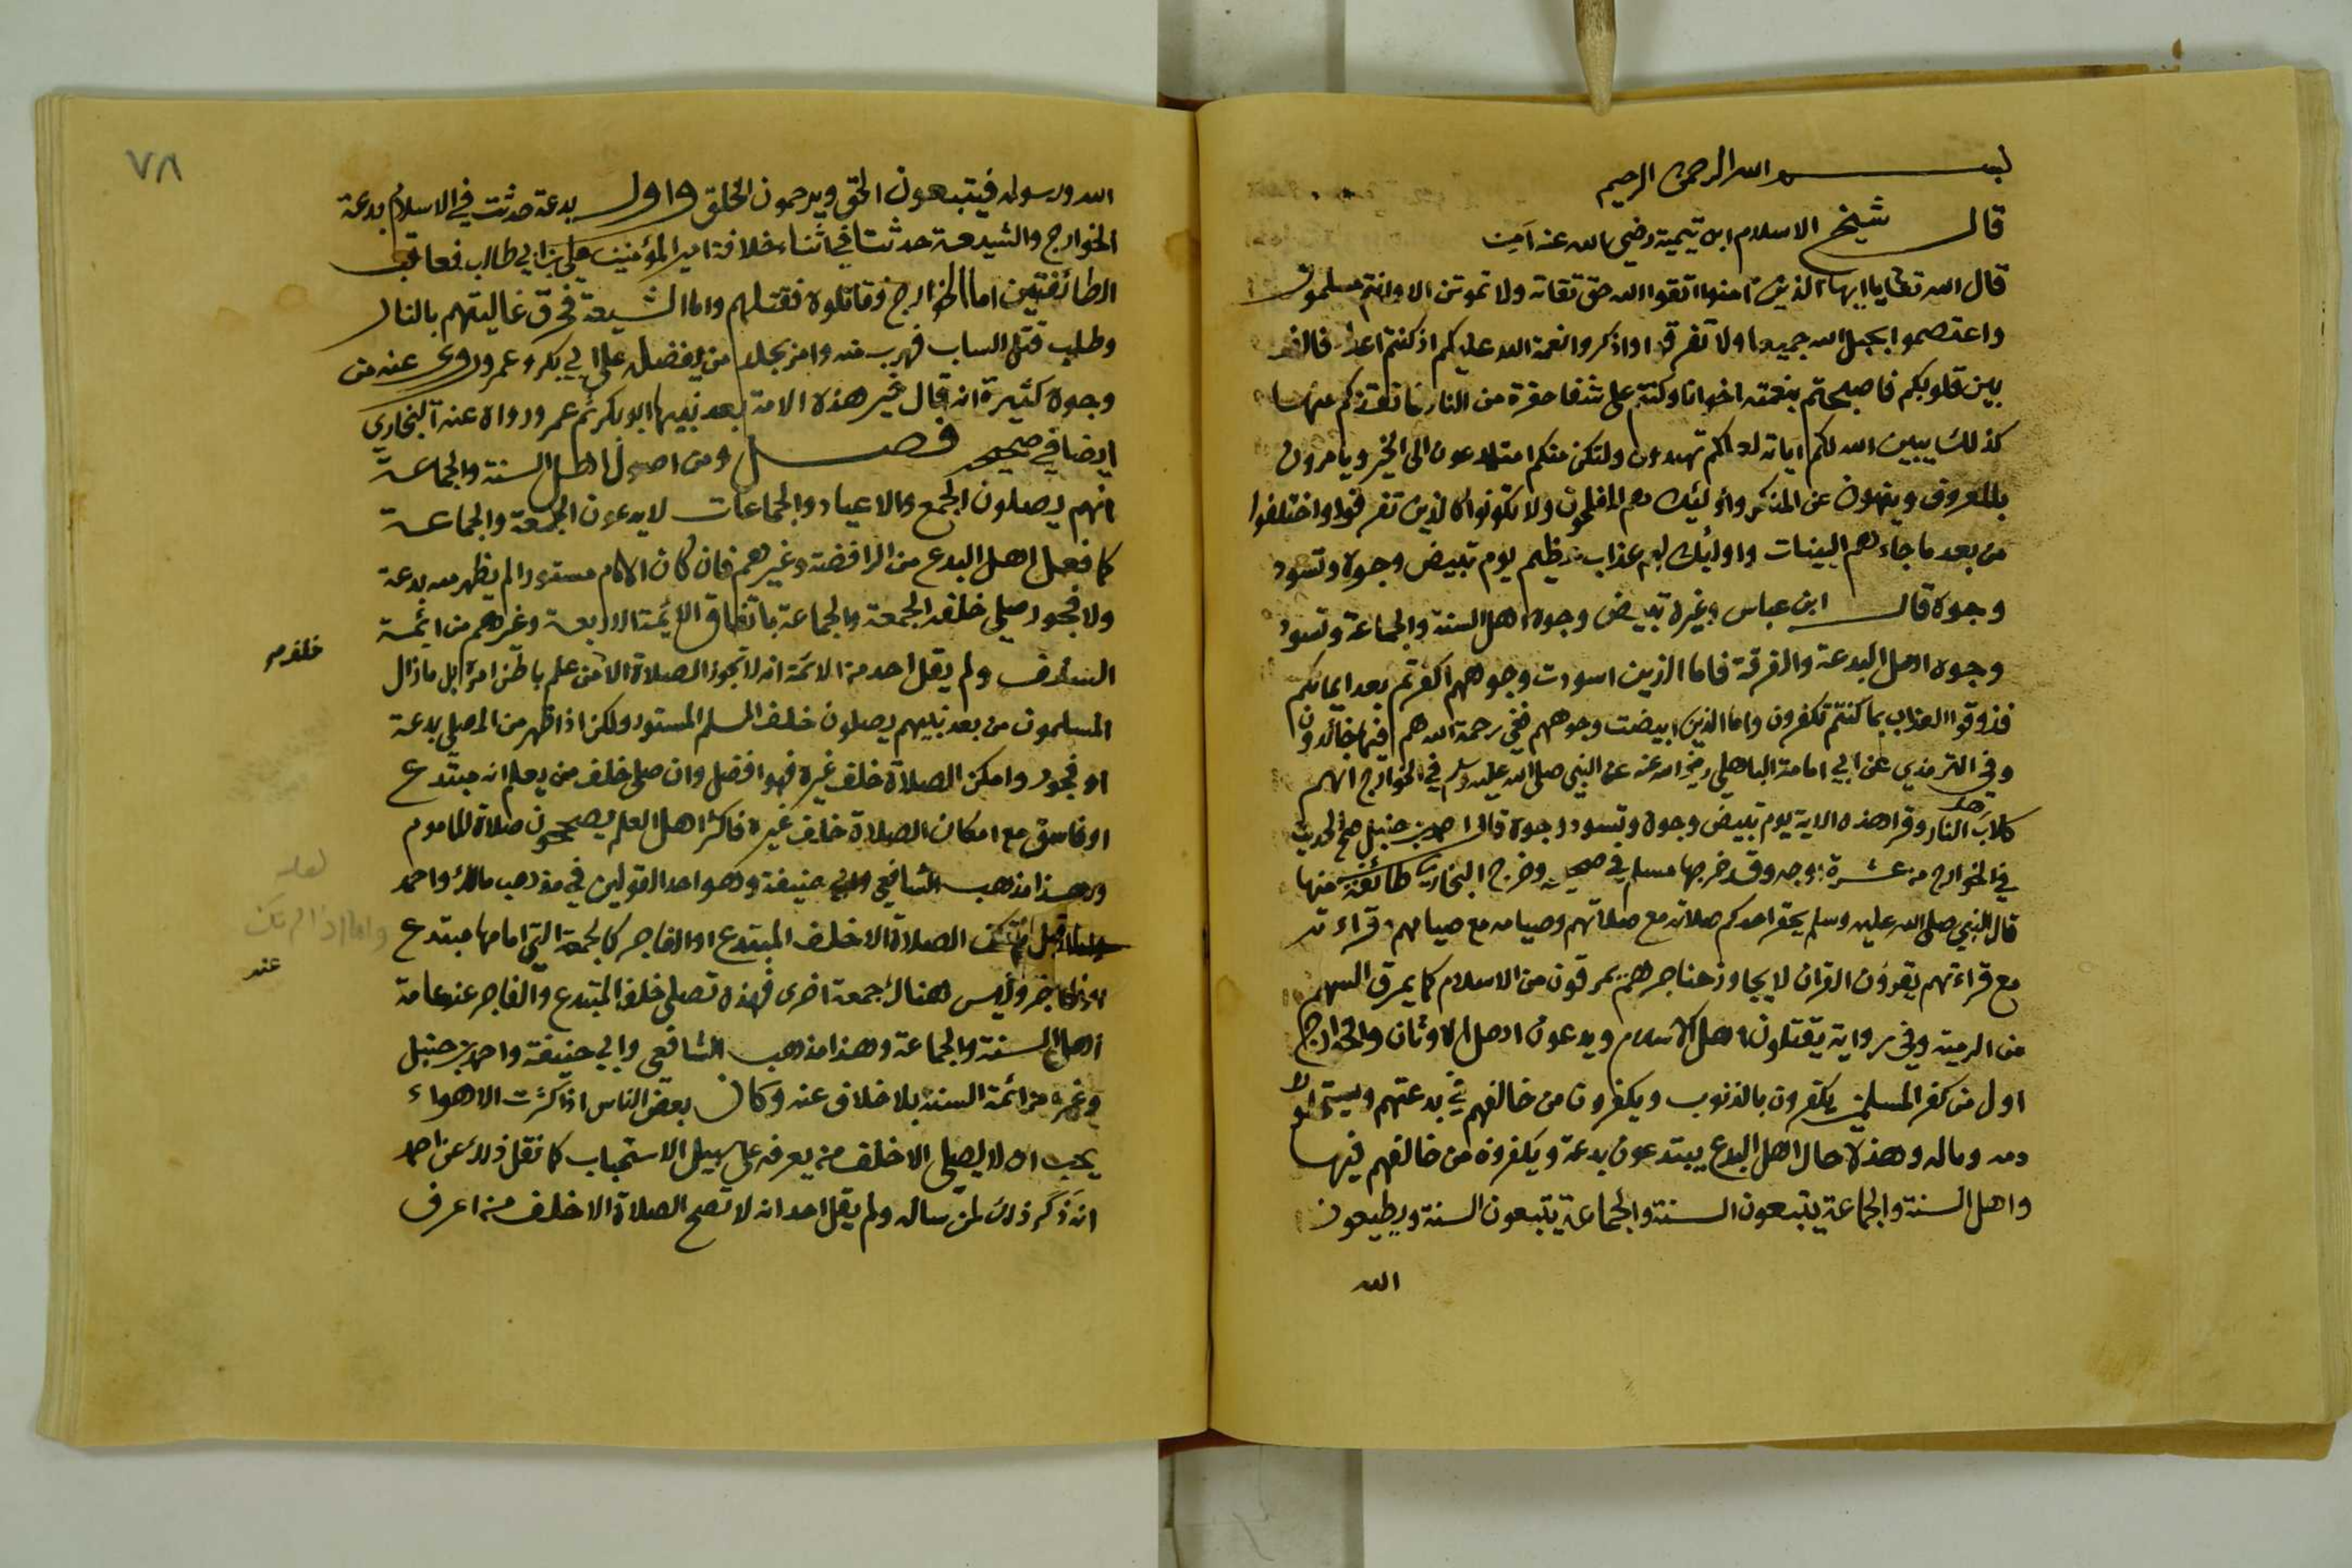 بسم الله الرحمن الرحيم
قال شيخ الاسلام ابن تيمية رضي الله عنه آمين
قال الله تعالى يا ايها الذين امنوا اتقوا الله حق تقاته ولا تموتن الا وانتم مسلمون
واعتصموا بحبل الله جميعا ولا تفرقوا واذكروا نعمة الله عليكم اذ كنتم اعداء فالف
بين قلوبكم فاصبحتم بنعمته اخوانا وكنتم على شفا حفرة من النار فانقذكم منها
كذلك يبين الله لكم آياته لعلكم تهتدون ولتكن منكم امة يدعون الى الخير ويامرون
بالمعروف وينهون عن المنكر واولئك هم المفلحون ولا تكونوا كالذين تفرقوا واختلفوا
من بعد ما جاءهم البينات واولئك لهم عذاب عظيم يوم تبيض وجوه وتسود
وجوه قال ابن عباس وغيره تبيض وجوه اهل السنة والجماعة وتسود
وجوه اهل البدعة والفرقة فاما الذين اسودت وجوههم اكفرتم بعد ايمانكم
فذوقوا العذاب بما كنتم تكفرون واما الذين ابيضت وجوههم ففي رحمة الله هم فيها خالدون
وفي الترمذي عن ابي امامة الباهلي رضي الله عنه عن النبي صلى الله عليه وسلم في الخوارج انهم
كلاب اهل النار وقرا هذه الاية يوم تبيض وجوه وتسود وجوه قال احمد بن حنبل صح الحديث
في الخوارج من عشرة اوجه وقد خرجها مسلم في صحيحه وخرج البخاري طائفة منها
قال النبي صلى الله عليه وسلم يحقر احدكم صلاته مع صلاتهم وصيامه مع صيامهم وقراءته
مع قراءتهم يقرؤن القران لا يجاوز حناجرهم يمرقون من الاسلام كما يمرق السهم
من الرمية وفي رواية يقتلون اهل الاسلام ويدعون اهل الاوثان والخوارج
اول من كفر المسلمين يكفرون بالذنوب ويكفرون من خالفهم في بدعتهم ويستحلون
دمه وماله وهذه حال اهل البدع يبتدعون بدعة ويكفرون من خالفهم فيها
واهل السنة والجماعة يتبعون السنة والجماعة يتبعون السنة ويطيعون
الله
٧٨
الله ورسوله فيتبعون الحق ويرحمون الخلق واول بدعة حدثت في الاسلام بدعة
الخوارج والشيعة حدثتا في اثناء خلافة امير المؤمنين علي بن ابي طالب فعاقب
الطائفتين اما الخوارج فقاتلوه فقتلهم واما الشيعة فحرق غاليتهم بالنار
وطلب قتل الساب فهرب منه وامر بجلد من يفضله على ابي بكر وعمر وروى عنه من
وجوه كثيرة انه قال خير هذه الامة بعد نبيها ابو بكر ثم عمر ورواه عنه البخاري
ايضا في صحيحه فصل ومن اصول اهل السنة والجماعة
انهم يصلون الجمع والاعياد والجماعات لا يدعون الجمعة والجماعة
كما فعل اهل البدع من الرافضة وغيرهم فان كان الامام مستورا لم يظهر منه بدعة
ولا فجور صلي خلفه الجمعة والجماعة باتفاق الائمة الاربعة وغيرهم من ائمة
خلفهم
السلف ولم يقل احد من الائمة انه لا تجوز الصلاة الا من علم باطن امره بل ما زال
المسلمون من بعد نبيهم يصلون خلف المسلم المستور ولكن اذا ظهر من المصلي بدعة
او فجور وامكن الصلاة خلف غيره فهو افضل وان صلى خلف من يعلم انه مبتدع
او فاسق مع امكان الصلاة خلف غيره فاكثر اهل العلم يصححون صلاة الماموم
وهذا مذهب الشافعي وابي حنيفة وهو احد القولين في مذهب مالك واحمد
لعله
واما اذا لم يمكن
تمكن الصلاة الا خلف المبتدع او الفاجر كالجمعة التي امامها مبتدع
عند
او فاجر وليس هناك جمعة اخرى فهذه تصلى خلف المبتدع والفاجر عند عامة
اهل السنة والجماعة وهذا مذهب الشافعي وابي حنيفة واحمد بن حنبل
وغيره من ائمة السنة بلا خلاف عنه وكان بعض الناس اذا كثرت الاهواء
يحب ان لا يصلي الا خلف من يعرفه على سبيل الاستحباب كما نقل ذلك عن احمد
انه ذكر ذلك لمن ساله ولم يقل احد انه لا تصح الصلاة الا خلف من اعرف